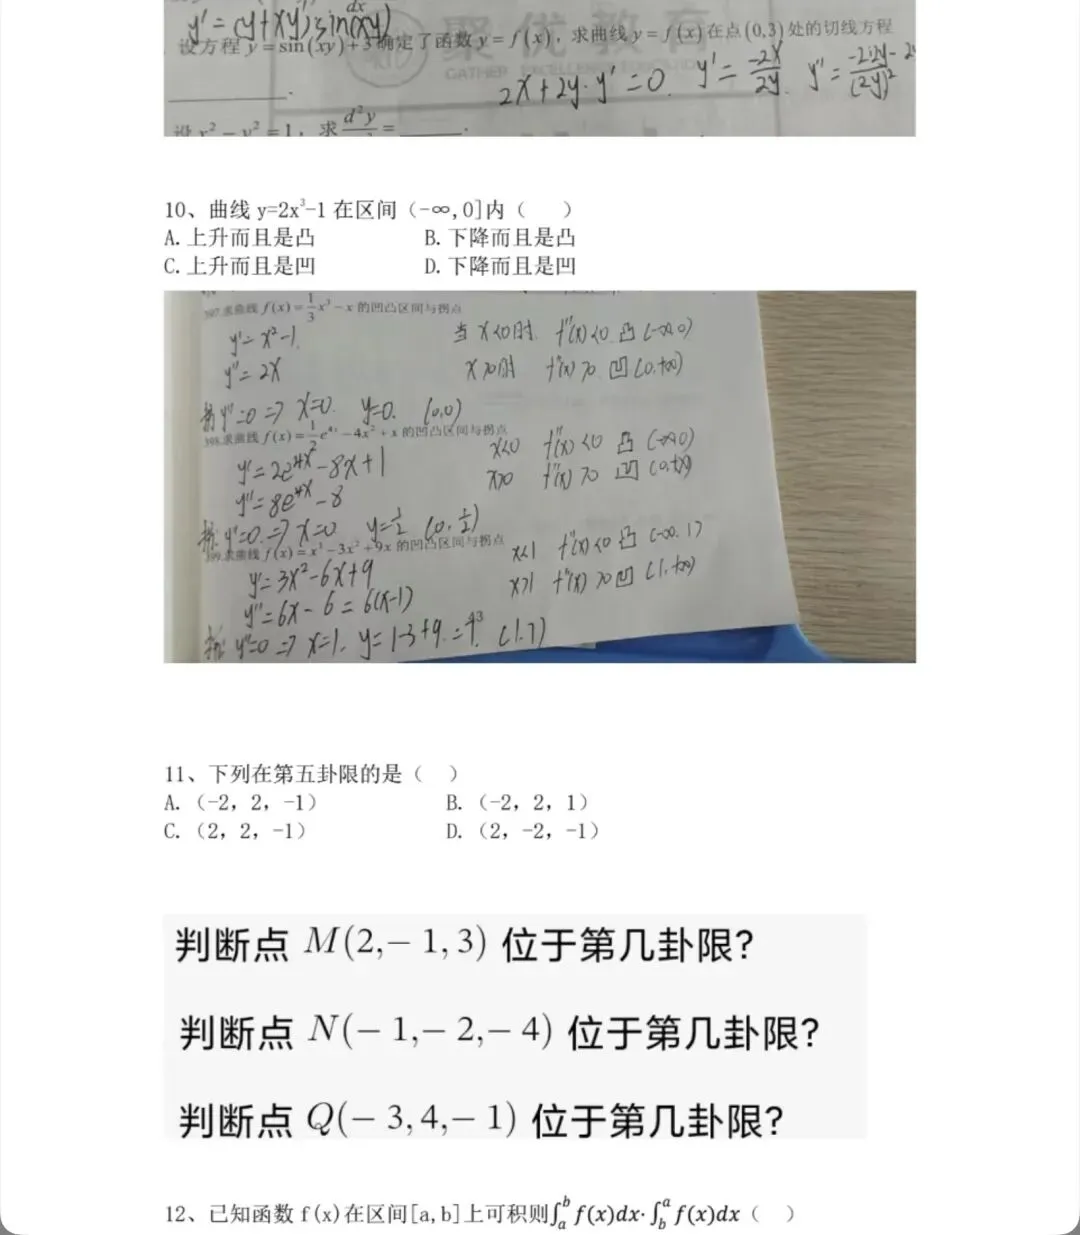 y' = (y+xy')sin(xy)
dx
设方程 y = sin(xy)+3确定了函数 y = f(x), 求曲线 y = f(x) 在点(0,3)处的切线方程
聚优教育
GATHER EXCELLENCE
2x+2y·y'=0. y'= -2x/2y y''=
设 x²-y²=1, 求 d²y =
10、曲线 y=2x³-1 在区间（-∞,0]内（ ）
A. 上升而且是凸 B. 下降而且是凸
C. 上升而且是凹 D. 下降而且是凹
397.求曲线 f(x) = 1/3 x³ - x 的凹凸区间与拐点
y'= x²-1 当 x<0时. f''(x)<0 凸 (-∞,0)
y''= 2x x>0时 f''(x)>0 凹 (0,+∞)
y''=0 => x=0. y=0. (0,0)
398.求曲线 f(x) = 1/2 e⁴ˣ - 4x² + x 的凹凸区间与拐点
y'= 2e⁴ˣ-8x+1 x<0 f''(x)<0 凸 (-∞,0)
y''= 8e⁴ˣ-8 x>0 f''(x)>0 凹 (0,+∞)
y''=0 => x=0 y=1/2 (0,1/2)
399.求曲线 f(x) = x³-3x²+9x 的凹凸区间与拐点
y'= 3x²-6x+9 x<1 f''(x)<0 凸 (-∞,1)
y''= 6x-6 = 6(x-1) x>1 f''(x)>0 凹 (1,+∞)
y''=0 => x=1. y=1-3+9 (1.7)
11、下列在第五卦限的是（ ）
A.（-2，2，-1） B.（-2，2，1）
C.（2，2，-1） D.（2，-2，-1）
判断点 M(2,-1,3) 位于第几卦限?
判断点 N(-1,-2,-4) 位于第几卦限?
判断点 Q(-3,4,-1) 位于第几卦限?
12、已知函数 f(x)在区间[a,b]上可积则∫ₐᵇ f(x)dx·∫ᵇᵃ f(x)dx（ ）